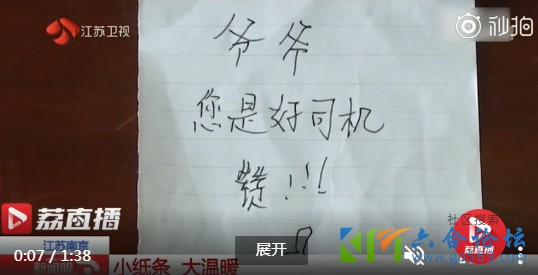 江苏卫视
秒拍
爷爷
您是好司机
赞!!!
荔直播
社区搜索
荔直播
江苏南京
六合论坛
0:07 / 1:38
展开
小纸条 大温暖